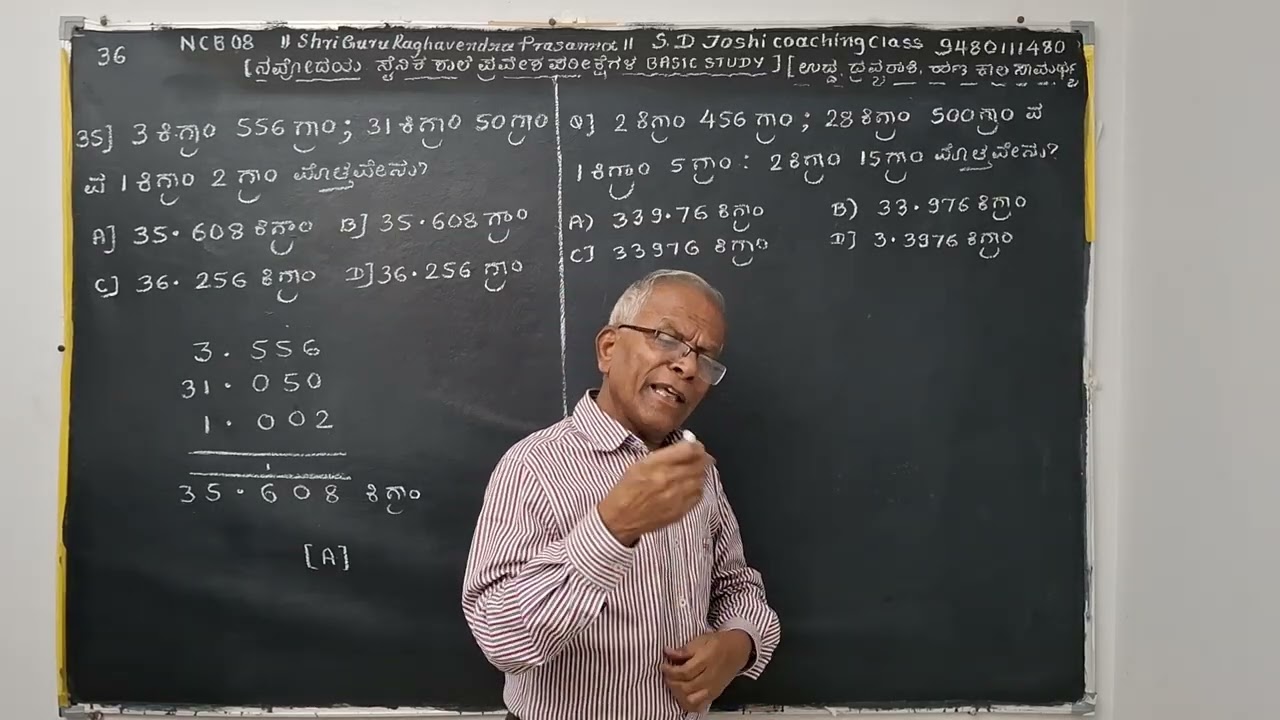 36 NCB08 || Shri Guru Raghavendra Prasanna || S.D Joshi coaching Class 9480111480
[ನವೋದಯ ಸೈನಿಕ ಶಾಲೆ ಪ್ರವೇಶ ಪರೀಕ್ಷೆಗಳ BASIC STUDY] [ಉದ್ದ, ದ್ರವ್ಯರಾಶಿ, ಹಣ ಕಾಲ ಸಾಮರ್ಥ್ಯ
35] 3 ಕಿಗ್ರಾಂ 556 ಗ್ರಾಂ; 31 ಕಿಗ್ರಾಂ 50 ಗ್ರಾಂ
ವ 1 ಕಿಗ್ರಾಂ 2 ಗ್ರಾಂ ಮೊತ್ತವೇನು?
A] 35.608 ಕಿಗ್ರಾಂ B] 35.608 ಗ್ರಾಂ
C] 36.256 ಕಿಗ್ರಾಂ D] 36.256 ಗ್ರಾಂ
3.556
31.050
1.002
35.608 ಕಿಗ್ರಾಂ
[A]
Q] 2 ಕಿಗ್ರಾಂ 456 ಗ್ರಾಂ; 28 ಕಿಗ್ರಾಂ 500 ಗ್ರಾಂ ವ
1 ಕಿಗ್ರಾಂ 5 ಗ್ರಾಂ : 2 ಕಿಗ್ರಾಂ 15 ಗ್ರಾಂ ಮೊತ್ತವೇನು?
A) 339.76 ಕಿಗ್ರಾಂ B) 33.976 ಕಿಗ್ರಾಂ
C] 33976 ಕಿಗ್ರಾಂ D] 3.3976 ಕಿಗ್ರಾಂ